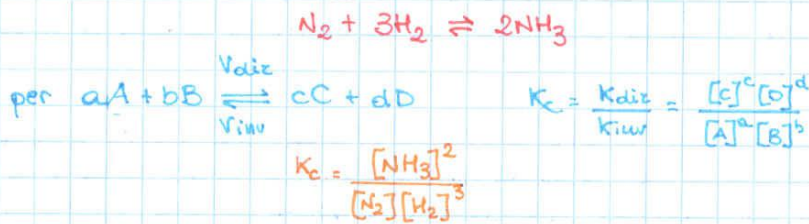 N₂ + 3H₂ ⇌ 2NH₃
per aA + bB ⇌ cC + dD Vdir Vinv Kc = Kdir / Kinv = [C]ᶜ[D]ᵈ / [A]ᵃ[B]ᵇ
Kc = [NH₃]² / [N₂][H₂]³